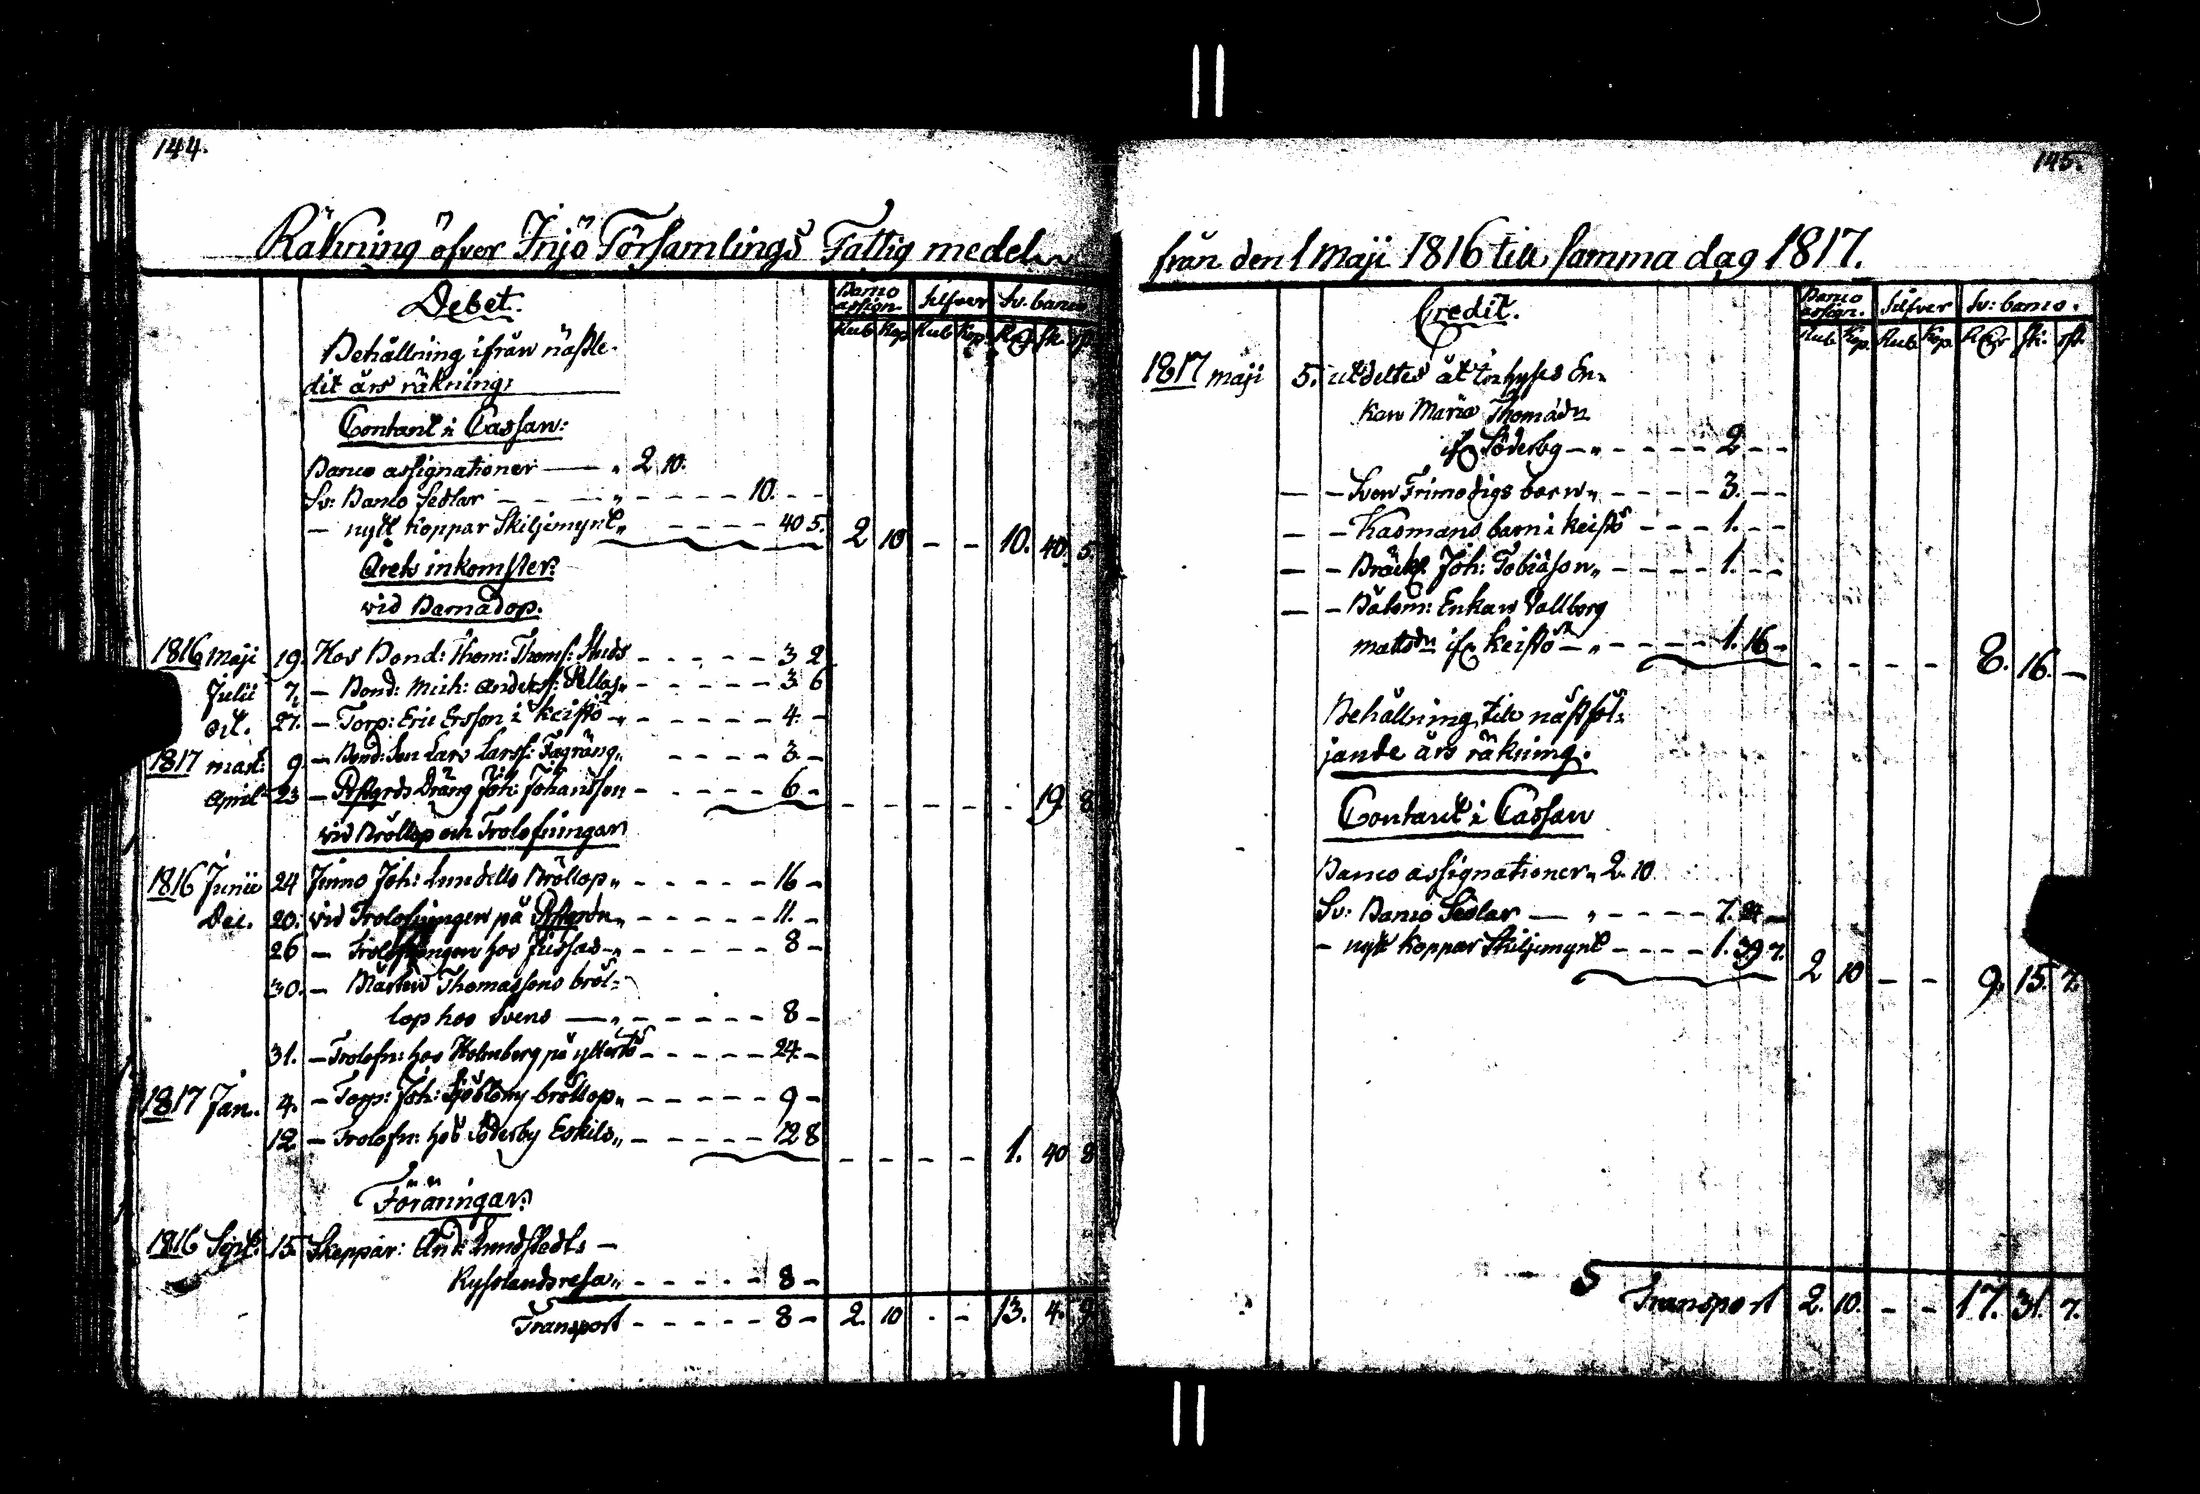 144.
Räkning öfver Iniö Församlings Fattig medel
Debet.
Banco assign. Silfver Sv. banco
Rub. Kop. Rub. Kop. Rdr. sk. rst.
Behållning ifrån nästle-
dit års räkning:
Contant i Cassan:
Banco assignationer — „ 2 10.
Sv: Banco Sedlar - - - „ - - - - 10. - -
— nytt koppar Skiljemynt „ - - - - 40 5. 2 10 - - 10. 40. 5.
Årets inkomster:
vid Barnadop.
1816 Maji 19. Hos Bond: Thom: Thoms: - - - - - 3 2
Julii 7. — Bond: Mich: Anders: - - - - - 3 6
Oct. 27. — Torp: Eric Ersson i Keistö „ - - - - - 4. -
1817 mart: 9. — Bond: Son Lars Larss: „ - - - - - 3. -
April 23 — Dräng Joh: Johansson - - - - - 6 - - - - - - 19 8
vid Bröllop och Trolofningar
1816 Junii 24 Jimo Joh: Lundells Bröllop „ - - - - - 16 -
Dec. 20. vid Trolofningen på „ - - - - - 11. -
26 — Trolofningen hos Jussas „ - - - - - 8 -
30. — Mårten Thomassons bröl-
lop hos Svens — „ - - - - - 8 -
31. — Trolofn: hos Holmberg på - - - - - 24. -
1817 Jan. 4. — Torp: Joh: bröllop „ - - - - - 9 -
12 — Trolofn: hos Söderby Eskils „ - - - - - 12 8 - - - - 1. 40 8
Föräringar:
1816 Sept: 15. Skeppar: And: Lundstedts —
Rysslandsresa „ - - - - - 8 -
Transport - - - - - 8 - 2. 10 - - 13. 4. 9.
145.
från den 1 Maji 1816 till samma dag 1817.
Credit.
Banco assign. Silfver Sv: banco.
Rub. Kop. Rub. Kop. Rdr sk. rst.
1817 maji 5. utdeltes åt Inhyses En-
kan Maria Thomådr
ifr Söderby — „ - - - - 2 - -
— — Sven Frimodigs barn „ - - - - 3. - -
— — Kasmans barn i Keistö - - - 1. - -
— — Bräckl. Joh: Tobiasson „ - - - - 1. - -
— — Båtsm: Enkan Vallborg
matts dr ifr Keistö — „ - - - - 1. 16 - - - - - 8. 16. —
Behållning till nästföl-
jande års räkning.
Contant i Cassan
Banco assignationer „ 2. 10
Sv: Banco Sedlar — „ - - - - 7. 24 —
- nytt Koppar Skiljemynt - - - - 1. 39 7. 2 10 - - 9. 15. 7.
Transport 2. 10. - - 17. 31. 7.